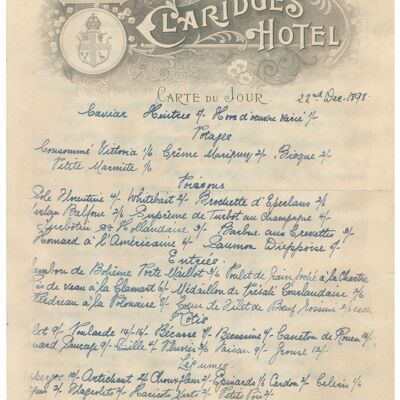 CLARIDGES
HOTEL
CARTE DU JOUR 22nd Dec. 1898.
Caviar Huitres 5/- Hors d'oeuvre Varié 1/-
Potages
Consommé Victoria 1/6 Crême Marigny 2/- Bisque 2/-
Petite Marmite 1/6
Poissons
Sole Florentine 4/- Whitebait 2/- Brochette d'Eperlans 2/6
Merlan Balfour 2/6 Suprème de Turbot au Champagne 4/-
Turbotin Hollandaise Barbue aux Crevettes
Homard à l'Américaine Saumon Dieppoise
Entrée
Jambon de Bohême Porte Maillot 3/6 Poulet de Grain à la Chartre
Ris de veau à la Clamart 6/- Médaillon de Présalé Courlandaise
Perdreau à la Polonaise Coeur de Filet de Boeuf Rossini
Rôtis
Poularde 10/- 14/- Bécasse 7/- Becassine 4/- Caneton de Rouen
Canard Sauvage Caille 4/- Pluvier Faisan Grouse 12/-
Légumes
Asperges 10/- Artichaut 2/- Choux fleur 2/- Epinards 1/6 Cardon 2/- Céleris 1/6
Flageolets 2/- Haricots Verts 2/- Petits Pois 2/-